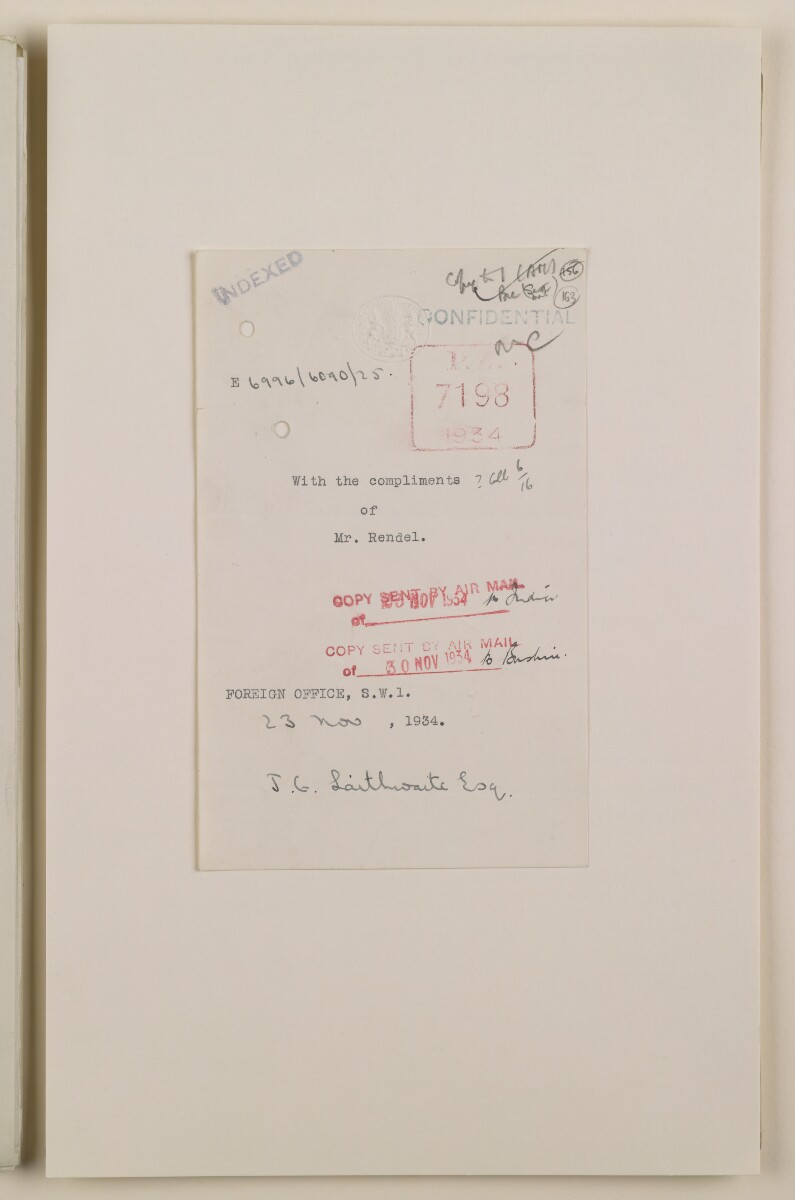 INDEXED
Copy to
156
163
CONFIDENTIAL
E 6996/6090/25.
P.Z.
7198
1934
With the compliments ? Coll 6/16
of
Mr. Rendel.
COPY SENT BY AIR MAIL
of NOV 1934 to India.
COPY SENT BY AIR MAIL
of 30 NOV 1934 to Bushire.
FOREIGN OFFICE, S.W.1.
23 Nov , 1934.
J.G. Laithwaite Esq.